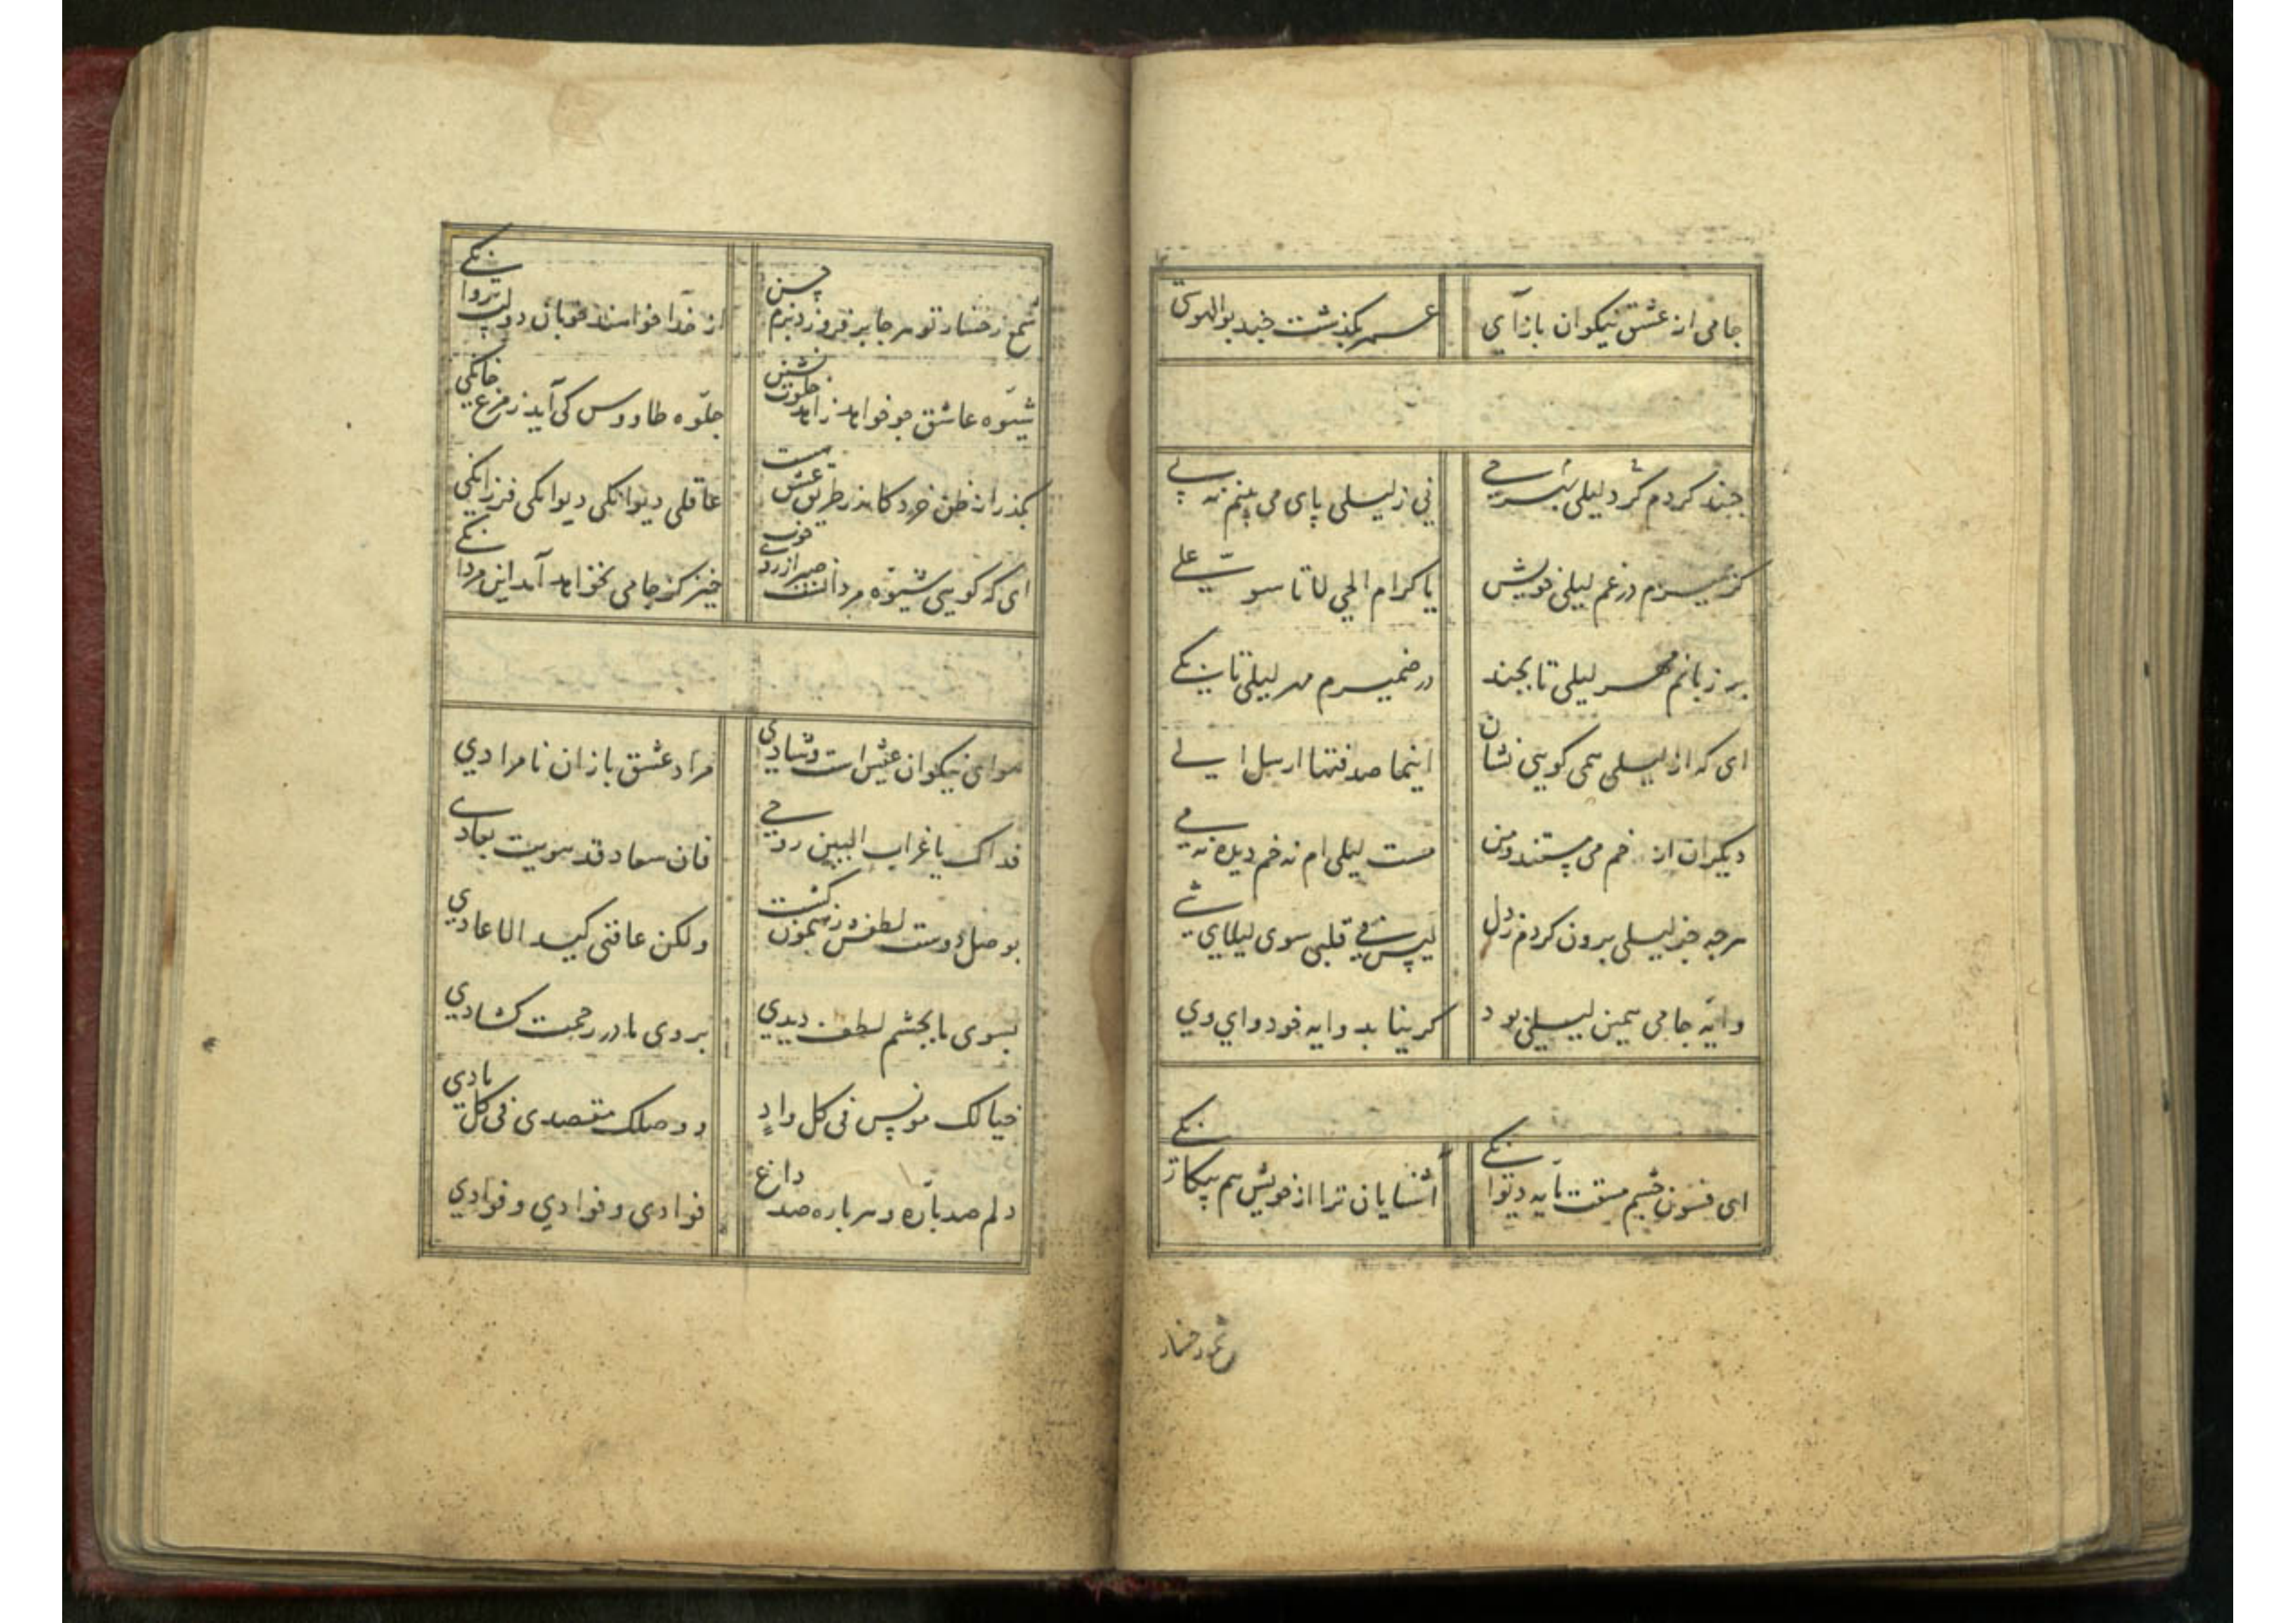 جامی از عشق نیکوان بازآی
عمر بگذشت چند بوالهوسی
چند گردم گرد لیلی شهر حی
نی ز لیلی پای می بینم نه پی
گر بمیرم در غم لیلی خویش
یا کرام الحی لا تاسوا علی
بر زبانم مهر لیلی تا بچند
در ضمیرم مهر لیلی تا بکی
ای که از لیلی همی گویی نشان
اینها صدقتها ارسل الی
دیگران از خم می مستند و من
مست لیلی ام نه خم دیده نه می
هرچه جز لیلی برون کردم ز دل
لیس فی قلبی سوی لیلای شی
وایه جامی همین لیلی بود
گر نیابد وایه خود وای وی
ای فسون چشم مستت مایه دیوانکی
آشنایان ترا از خویش هم بیکانکی
شمع رخسار
شمع رخسار تو هر جا برفروزد بزم حسن
از خدا خواهند خوبان دولت پروانکی
شیوه عاشق چو خواهد زاهد خلوت نشین
جلوه طاووس کی آید ز مرغ خانکی
بگذر از ظن خرد کاندر طریق عشق هست
عاقلی دیوانکی دیوانکی فرزانکی
ای که گویی شیوه مردانست صبر از روی خوب
خیز کز جامی نخواهد آمد این مردانکی
هوای نیکوان عیش است و شادی
مراد عشق بازان نامرادی
فداک یا غراب البین روحی
فان سعاد قد هویت بعادی
بوصل دوست لطفش رهنمون گشت
ولکن عاقنی کید الاعادی
بسوی ما بچشم لطف دیدی
بروی ما در رحمت گشادی
خیالک مونس فی کل واد
و وصلک مقصدی فی کل نادی
دلم صد پاره و هر پاره صد داغ
فوادی و فوادی و فوادی